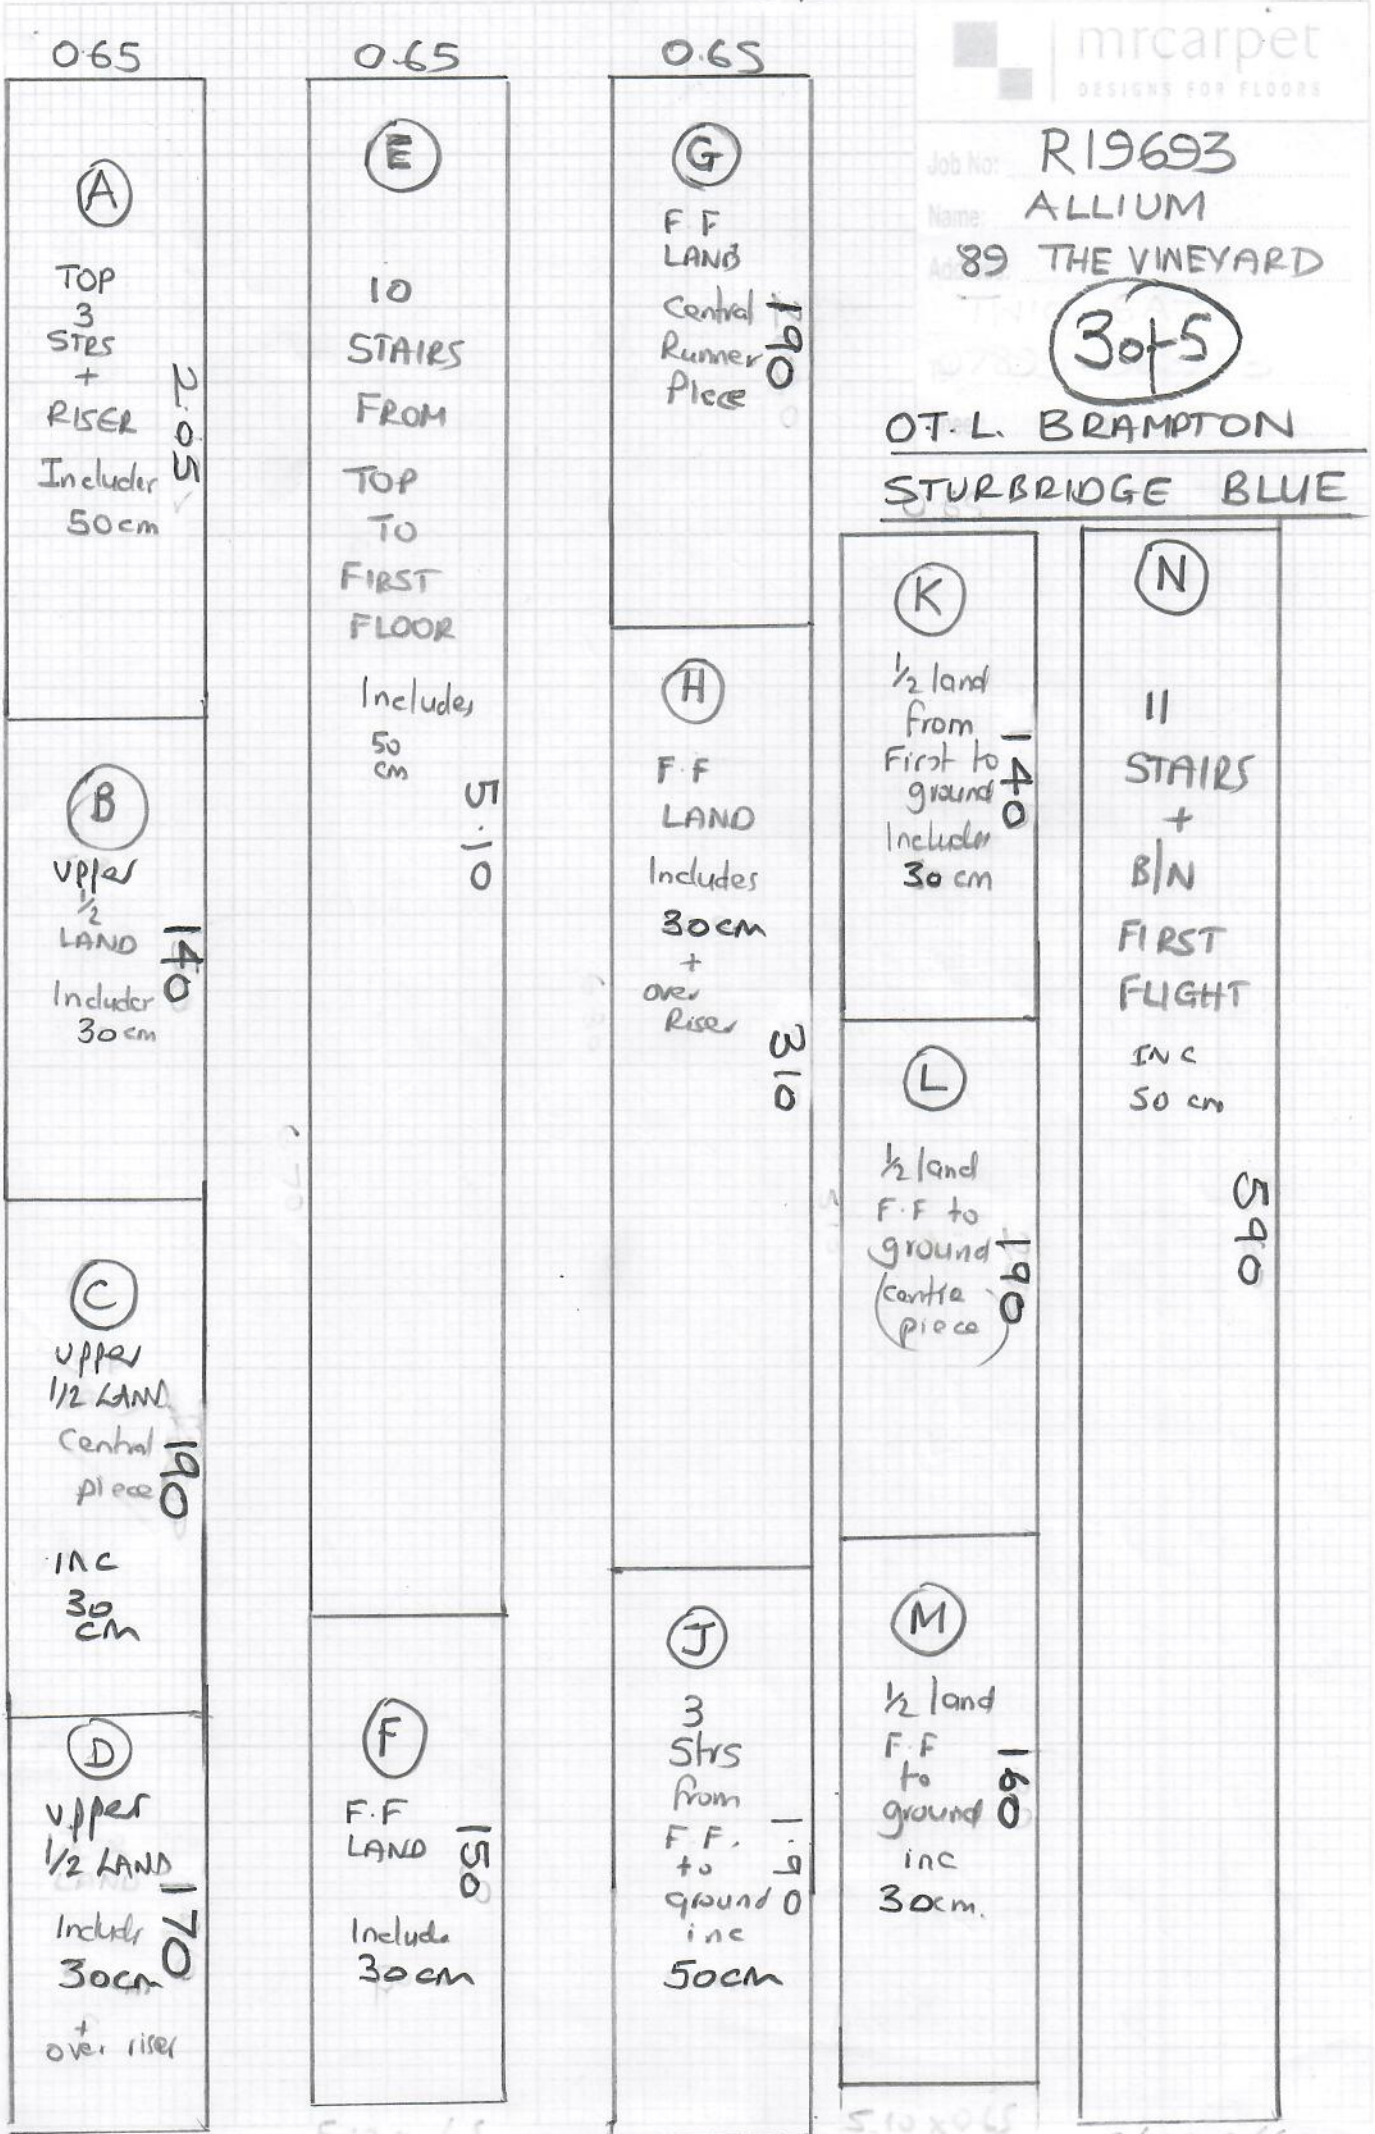 0.65
A
TOP
3
STRS
+
RISER
Includes
50cm
2.05
B
Upper
1/2
LAND
Includes
30cm
140
C
Upper
1/2 LAND
Central
piece
inc
30
cm
190
D
Upper
1/2 LAND
Includs
30cm
+
over riser
170
0.65
E
10
STAIRS
FROM
TOP
TO
FIRST
FLOOR
Includes
50
cm
5.10
F
F.F
LAND
Include
30cm
150
0.65
G
F F
LAND
Central
Runner
Piece
190
H
F.F
LAND
Includes
30cm
+
over
Riser
310
J
3
Strs
from
F F.
to
ground
inc
50cm
1.90
mrcarpet
DESIGNS FOR FLOORS
Job No: R19693
Name: ALLIUM
89 THE VINEYARD
3 of 5
O.T.L. BRAMPTON
STURBRIDGE BLUE
K
1/2 land
from
First to
ground
Includes
30 cm
140
L
1/2 land
F.F to
ground
(centre
piece)
190
M
1/2 land
F.F
to
ground
inc
30cm.
160
N
11
STAIRS
+
B/N
FIRST
FLIGHT
INC
50 cm
590